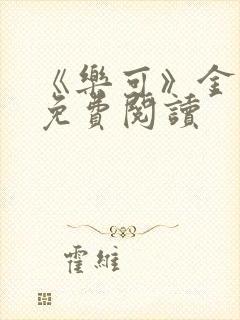 《樂可》全
免費閱讀
霍維